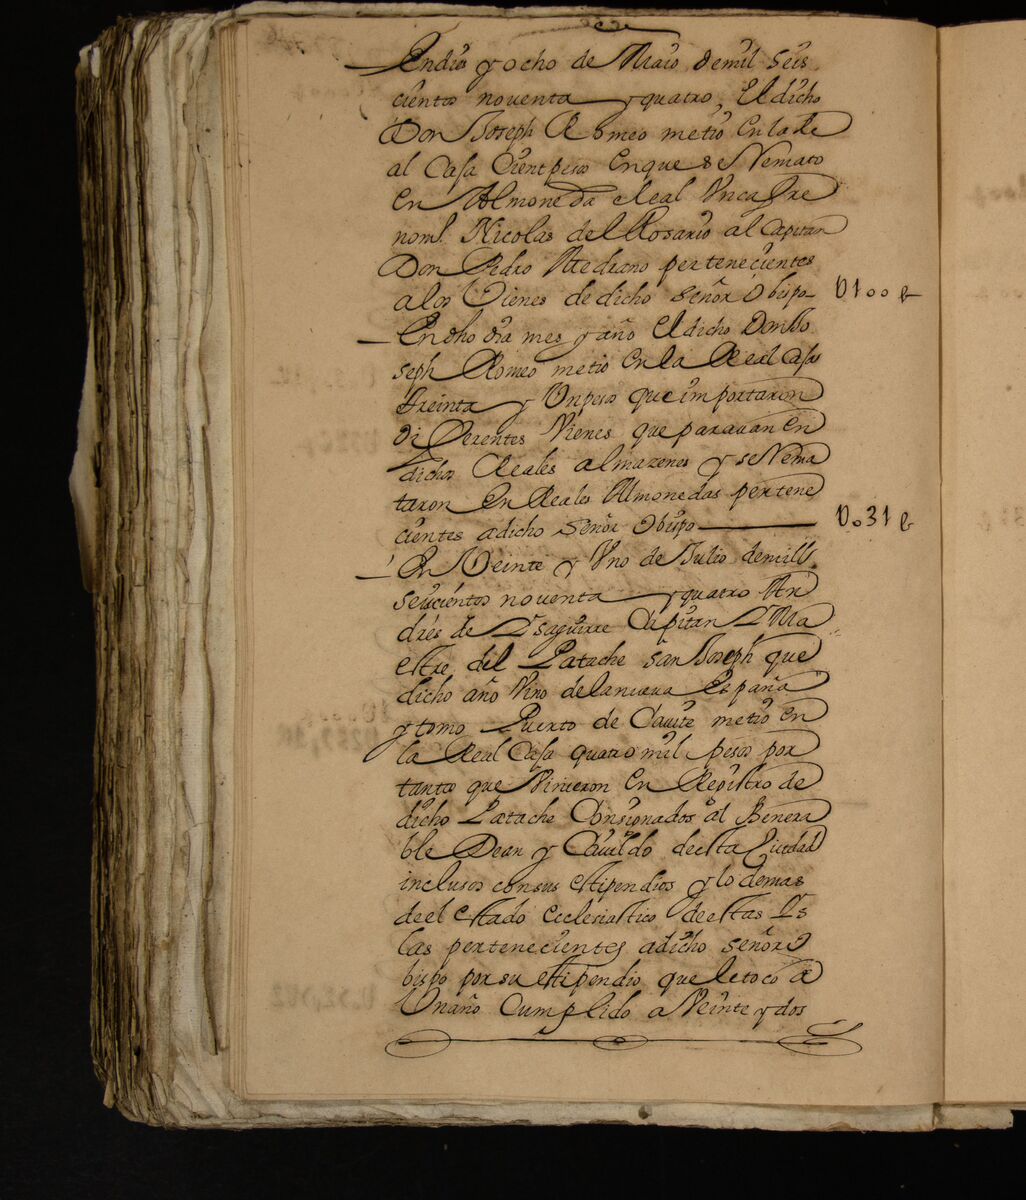 Endies y ocho de Maio demil seis
cientos noventa y quatro, El dicho
Don Joseph Romeo metio En la Re
al Caja Cient pesos En que se Remato
En Almoneda Real Un cafre
noml. Nicolas del Rosario al Capitan
Don Pedro Medrano pertenecientes
a los Vienes de dicho señor Obispo U100 ps
En dho dia mes y año El dicho Don Jo
seph Romeo metio En la Real Caja
treinta y Un pesos que importaron
diferentes Vienes que paravan En
dichos Reales almazenes y se Rema
taron En Reales Almonedas pertene
cientes a dicho señor Obispo U031 ps
En Veinte y Uno de Julio demill
seiscientos noventa y quatro An
dres de Ysaguirre Capitan Y Ma
estre del Patache san Joseph que
dicho año Vino de la nueva España
y tomo Puerto de Cavite metio En
la Real Caja quatro mil pesos por
tantos que Vinieron En Registro de
dicho Patache Consignados al Benera
ble Dean y Cavildo de esta Ciudad
inclusos con sus estipendios y lo demas
de el estado ecclesiastico de estas Ys
las pertenecientes a dicho señor O
bispo por su estipendio que le toco a
Un año Cumplido a Veinte y dos